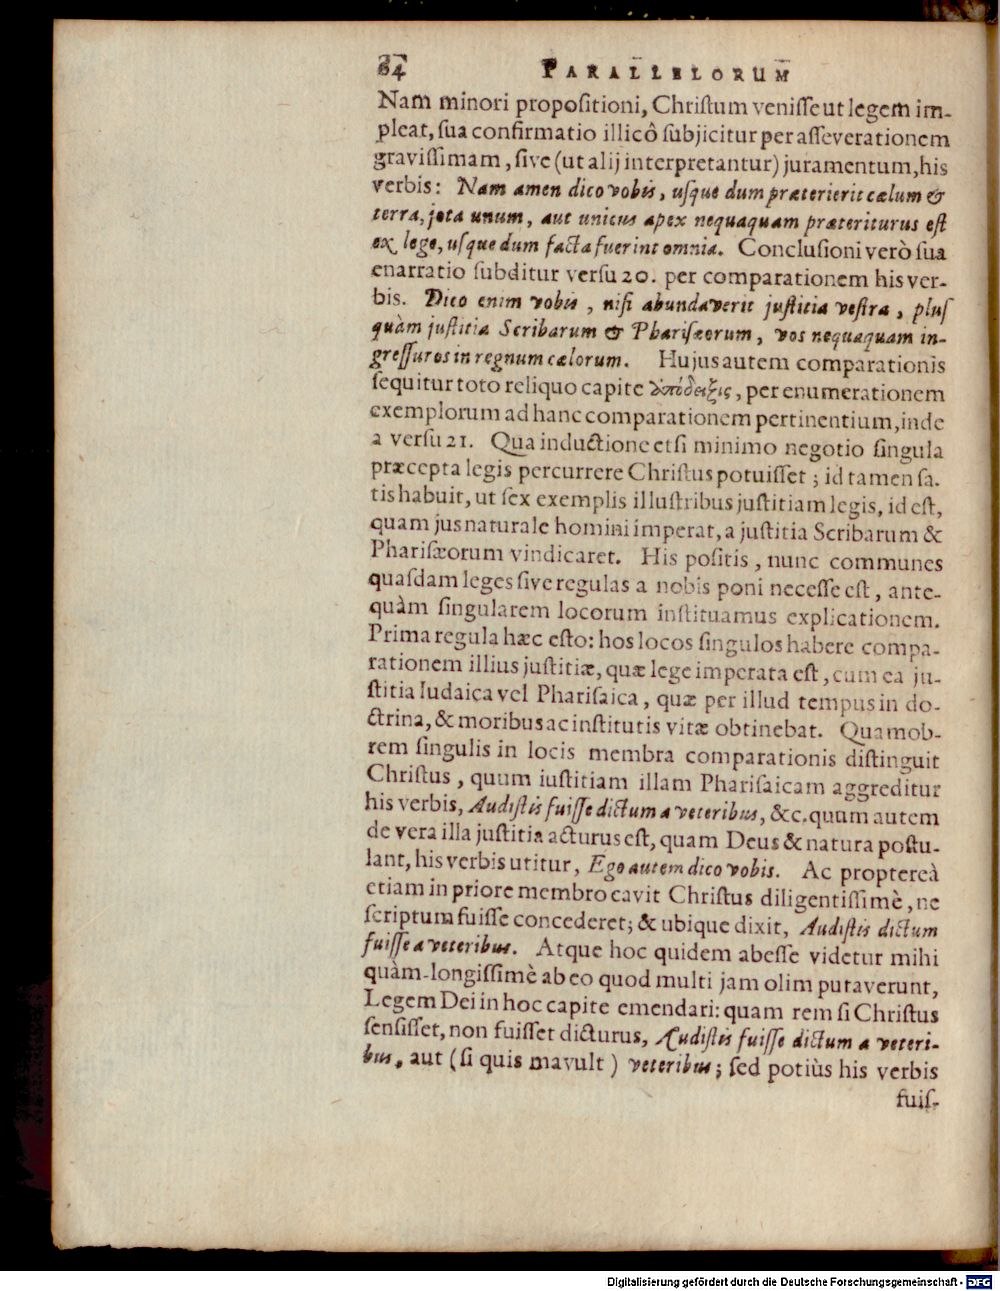 84 PARALLELORUM
Nam minori propositioni, Christum venisse ut legem im-
pleat, sua confirmatio illicô subjicitur per asseverationem
gravissimam, sive (ut alij interpretantur) juramentum, his
verbis: Nam amen dico vobis, usque dum præterierit cælum &
terra, jota unum, aut unicus apex nequaquam præteriturus est
ex lege, usque dum facta fuerint omnia. Conclusioni verò sua
enarratio subditur versu 20. per comparationem his ver-
bis. Dico enim vobis, nisi abundaverit justitia vestra, plus
quàm justitia Scribarum & Pharisæorum, vos nequaquam in-
gressuros in regnum cælorum. Hujus autem comparationis
sequitur toto reliquo capite ὑπόδειξις, per enumerationem
exemplorum ad hanc comparationem pertinentium, inde
a versu 21. Qua inductione etsi minimo negotio singula
præcepta legis percurrere Christus potuisset; id tamen sa-
tis habuit, ut sex exemplis illustribus justitiam legis, id est,
quam jus naturale homini imperat, a justitia Scribarum &
Pharisæorum vindicaret. His positis, nunc communes
quasdam leges sive regulas a nobis poni necesse est, ante-
quàm singularem locorum instituamus explicationem.
Prima regula hæc esto: hos locos singulos habere compa-
rationem illius justitiæ, quæ lege imperata est, cum ea ju-
stitia Iudaica vel Pharisaica, quæ per illud tempus in do-
ctrina, & moribus ac institutis vitæ obtinebat. Quamob-
rem singulis in locis membra comparationis distinguit
Christus, quum iustitiam illam Pharisaicam aggreditur
his verbis, Audistis fuisse dictum a veteribus, &c. quum autem
de vera illa justitia acturus est, quam Deus & natura postu-
lant, his verbis utitur, Ego autem dico vobis. Ac proptereà
etiam in priore membro cavit Christus diligentissimè, ne
scriptum fuisse concederet; & ubique dixit, Audistis dictum
fuisse a veteribus. Atque hoc quidem abesse videtur mihi
quàm-longissimè ab eo quod multi jam olim putaverunt,
Legem Dei in hoc capite emendari: quam rem si Christus
sensisset, non fuisset dicturus, Audistis fuisse dictum a veteri-
bus, aut (si quis mavult) veteribus; sed potiùs his verbis
fuis-
Digitalisierung gefördert durch die Deutsche Forschungsgemeinschaft - DFG